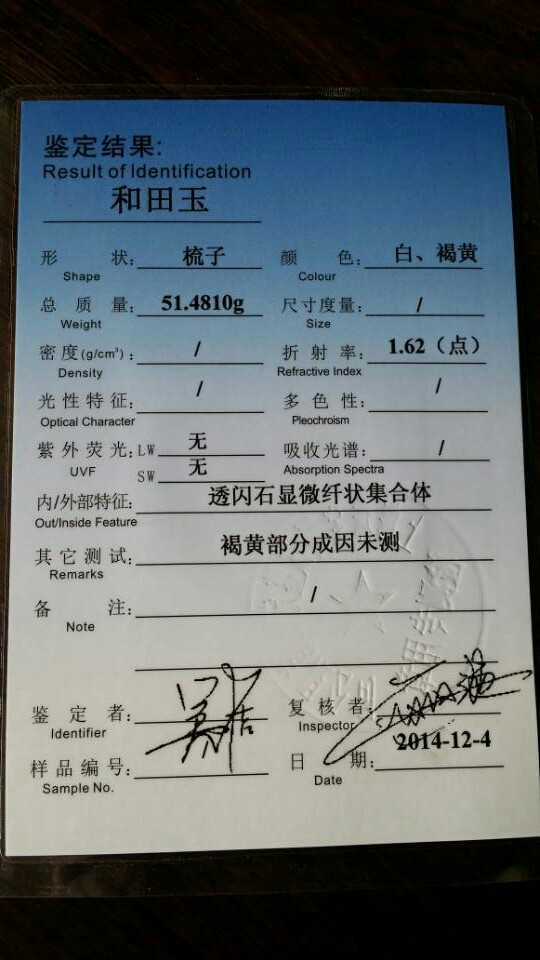 鉴定结果:
Result of Identification
和田玉
形 状: 梳子 颜 色: 白、褐黄
Shape Colour
总 质 量: 51.4810g 尺寸度量: /
Weight Size
密度(g/cm³): / 折 射 率: 1.62（点）
Density Refractive Index
光性特征: / 多 色 性: /
Optical Character Pleochroism
紫外荧光: LW 无 吸收光谱: /
UVF SW 无 Absorption Spectra
内/外部特征: 透闪石显微纤状集合体
Out/Inside Feature
其它测试: 褐黄部分成因未测
Remarks
备 注: /
Note
鉴 定 者: 复 核 者:
Identifier Inspector
样品编号: 日 期: 2014-12-4
Sample No. Date